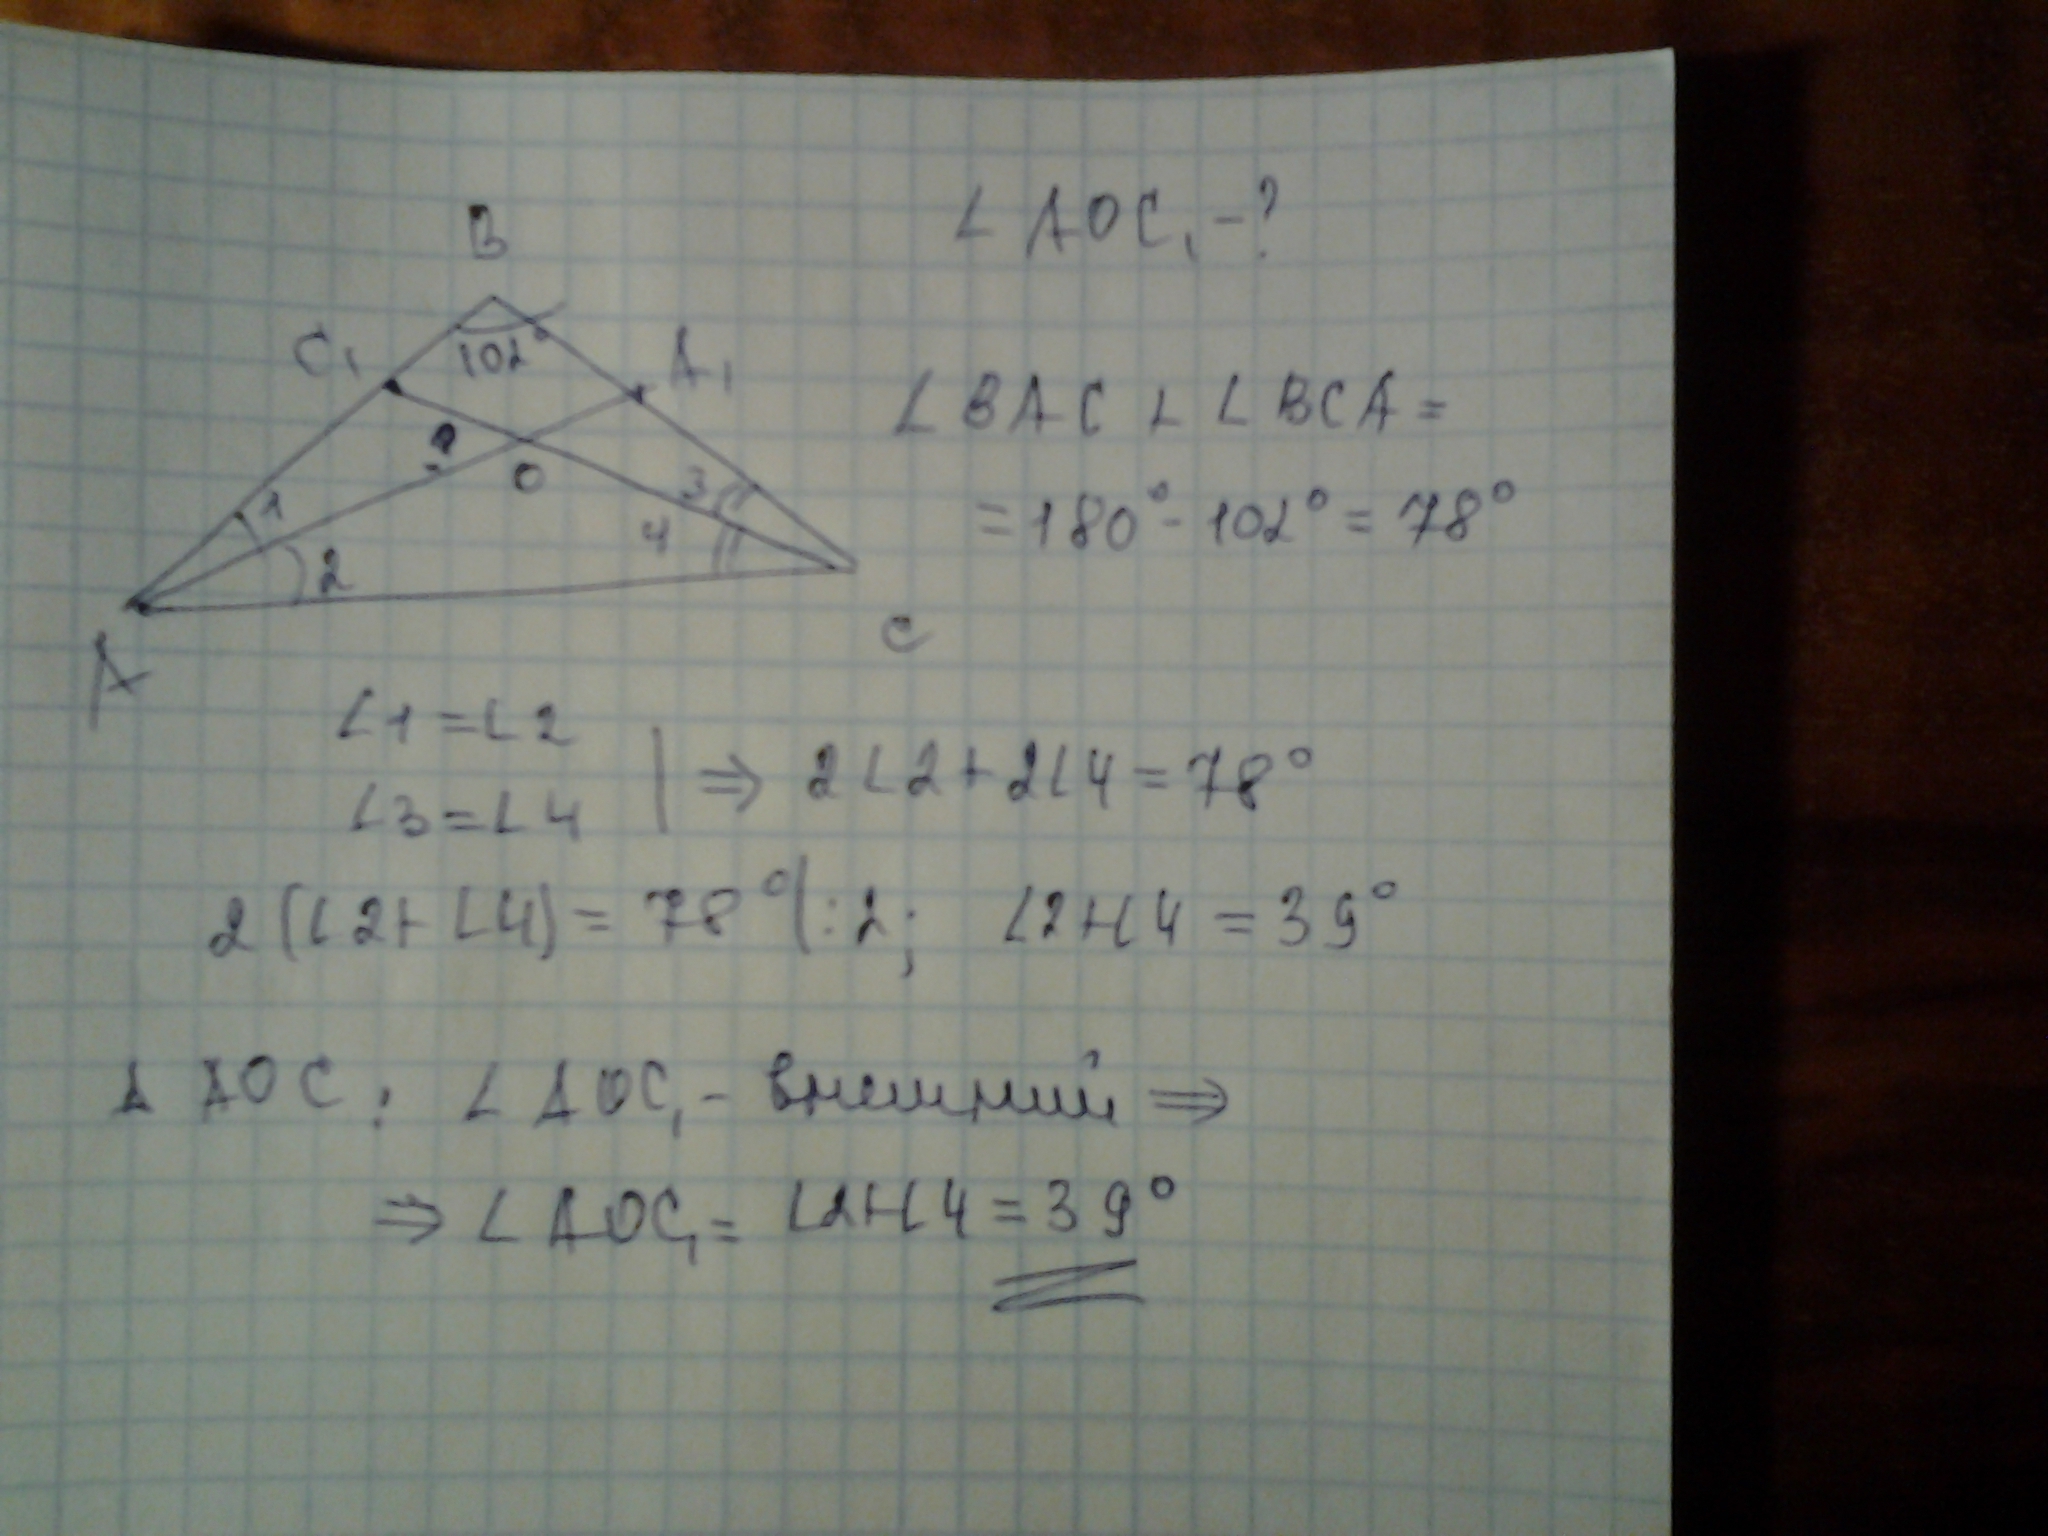 ∠AOC₁ - ?
B
C₁ 102° A₁
? O
1 2 3 4
A C
∠BAC + ∠BCA =
= 180° - 102° = 78°
∠1 = ∠2
∠3 = ∠4 | ⇒ 2∠2 + 2∠4 = 78°
2(∠2 + ∠4) = 78° |:2; ∠2+∠4 = 39°
Δ AOC: ∠AOC₁ - внешний ⇒
⇒ ∠AOC₁ = ∠2+∠4 = 39°